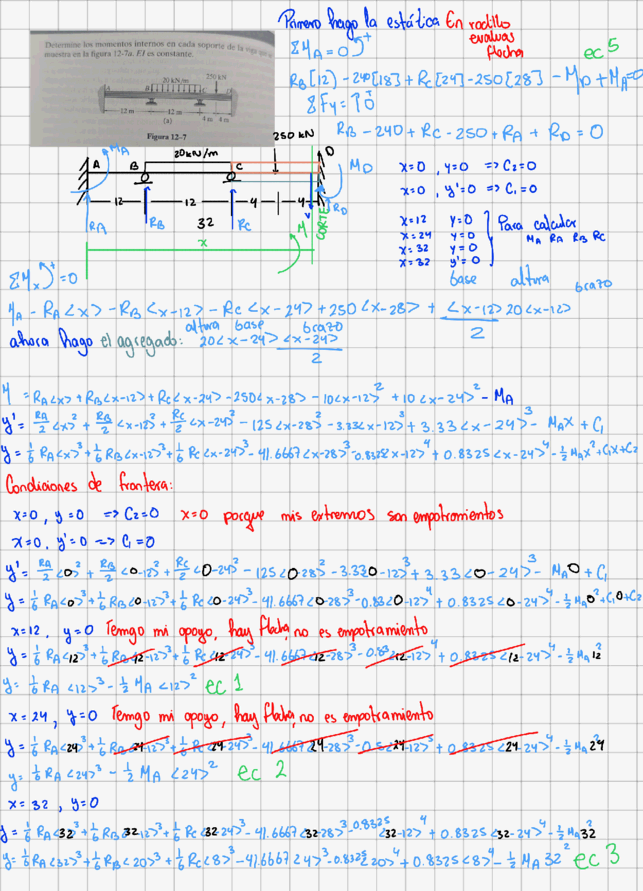 Primero hago la estática En rodillo
evaluas
flecha
Determine los momentos internos en cada soporte de la viga que se
muestra en la figura 12-7a. EI es constante.
20 kN/m
250 kN
A
B
C
12 m
12 m
4 m
4 m
(a)
Figura 12-7
ΣMA = 0
ec 5
RB[12] - 240[18] + RC[24] - 250[28] - MD + MA = 0
ΣFy = 0
RB - 240 + RC - 250 + RA + RD = 0
250 kN
20kN/m
MA
A
B
C
D
MD
12
12
4
4
32
RA
RB
RC
RD
V
M
CORTE
x
x=0 , y=0 => C2=0
x=0 , y'=0 => C1=0
x=12 y=0
x=24 y=0
x=32 y=0
x=32 y'=0
Para calcular
MA RA RB RC
ΣMx = 0
base altura brazo
MA - RA<x> - RB<x-12> - RC<x-24> + 250<x-28> + <x-12> 20<x-12> / 2
altura base brazo
ahora hago el agregado: 20<x-24> <x-24> / 2
M = RA<x> + RB<x-12> + RC<x-24> - 250<x-28> - 10<x-12>² + 10<x-24>² - MA
y' = RA/2 <x>² + RB/2 <x-12>² + RC/2 <x-24>² - 125<x-28>² - 3.33<x-12>³ + 3.33<x-24>³ - MAx + C1
y = 1/6 RA<x>³ + 1/6 RB<x-12>³ + 1/6 RC<x-24>³ - 41.6667<x-28>³ - 0.8325<x-12>⁴ + 0.8325<x-24>⁴ - 1/2 MAx² + C1x + C2
Condiciones de frontera:
x=0, y=0 => C2=0 x=0 porque mis extremos son empotramientos
x=0, y'=0 => C1=0
y' = RA/2 <0>² + RB/2 <0-12>² + RC/2 <0-24>² - 125<0-28>² - 3.33<0-12>³ + 3.33<0-24>³ - MA0 + C1
y = 1/6 RA<0>³ + 1/6 RB<0-12>³ + 1/6 RC<0-24>³ - 41.6667<0-28>³ - 0.83<0-12>⁴ + 0.8325<0-24>⁴ - 1/2 MA0² + C10 + C2
x=12, y=0 Tengo mi apoyo, hay flecha, no es empotramiento
y = 1/6 RA<12>³ + 1/6 RB<12-12>³ + 1/6 RC<12-24>³ - 41.6667<12-28>³ - 0.83<12-12>⁴ + 0.8325<12-24>⁴ - 1/2 MA12²
y = 1/6 RA<12>³ - 1/2 MA<12>² ec 1
x=24, y=0 Tengo mi apoyo, hay flecha, no es empotramiento
y = 1/6 RA<24>³ + 1/6 RB<24-12>³ + 1/6 RC<24-24>³ - 41.6667<24-28>³ - 0.5<24-12>³ + 0.8325<24-24>⁴ - 1/2 MA24²
y = 1/6 RA<24>³ - 1/2 MA<24>² ec 2
x=32, y=0
y = 1/6 RA<32>³ + 1/6 RB<32-12>³ + 1/6 RC<32-24>³ - 41.6667<32-28>³ - 0.8325<32-12>⁴ + 0.8325<32-24>⁴ - 1/2 MA32²
y = 1/6 RA<32>³ + 1/6 RB<20>³ + 1/6 RC<8>³ - 41.6667<4>³ - 0.8325<20>⁴ + 0.8325<8>⁴ - 1/2 MA32² ec 3